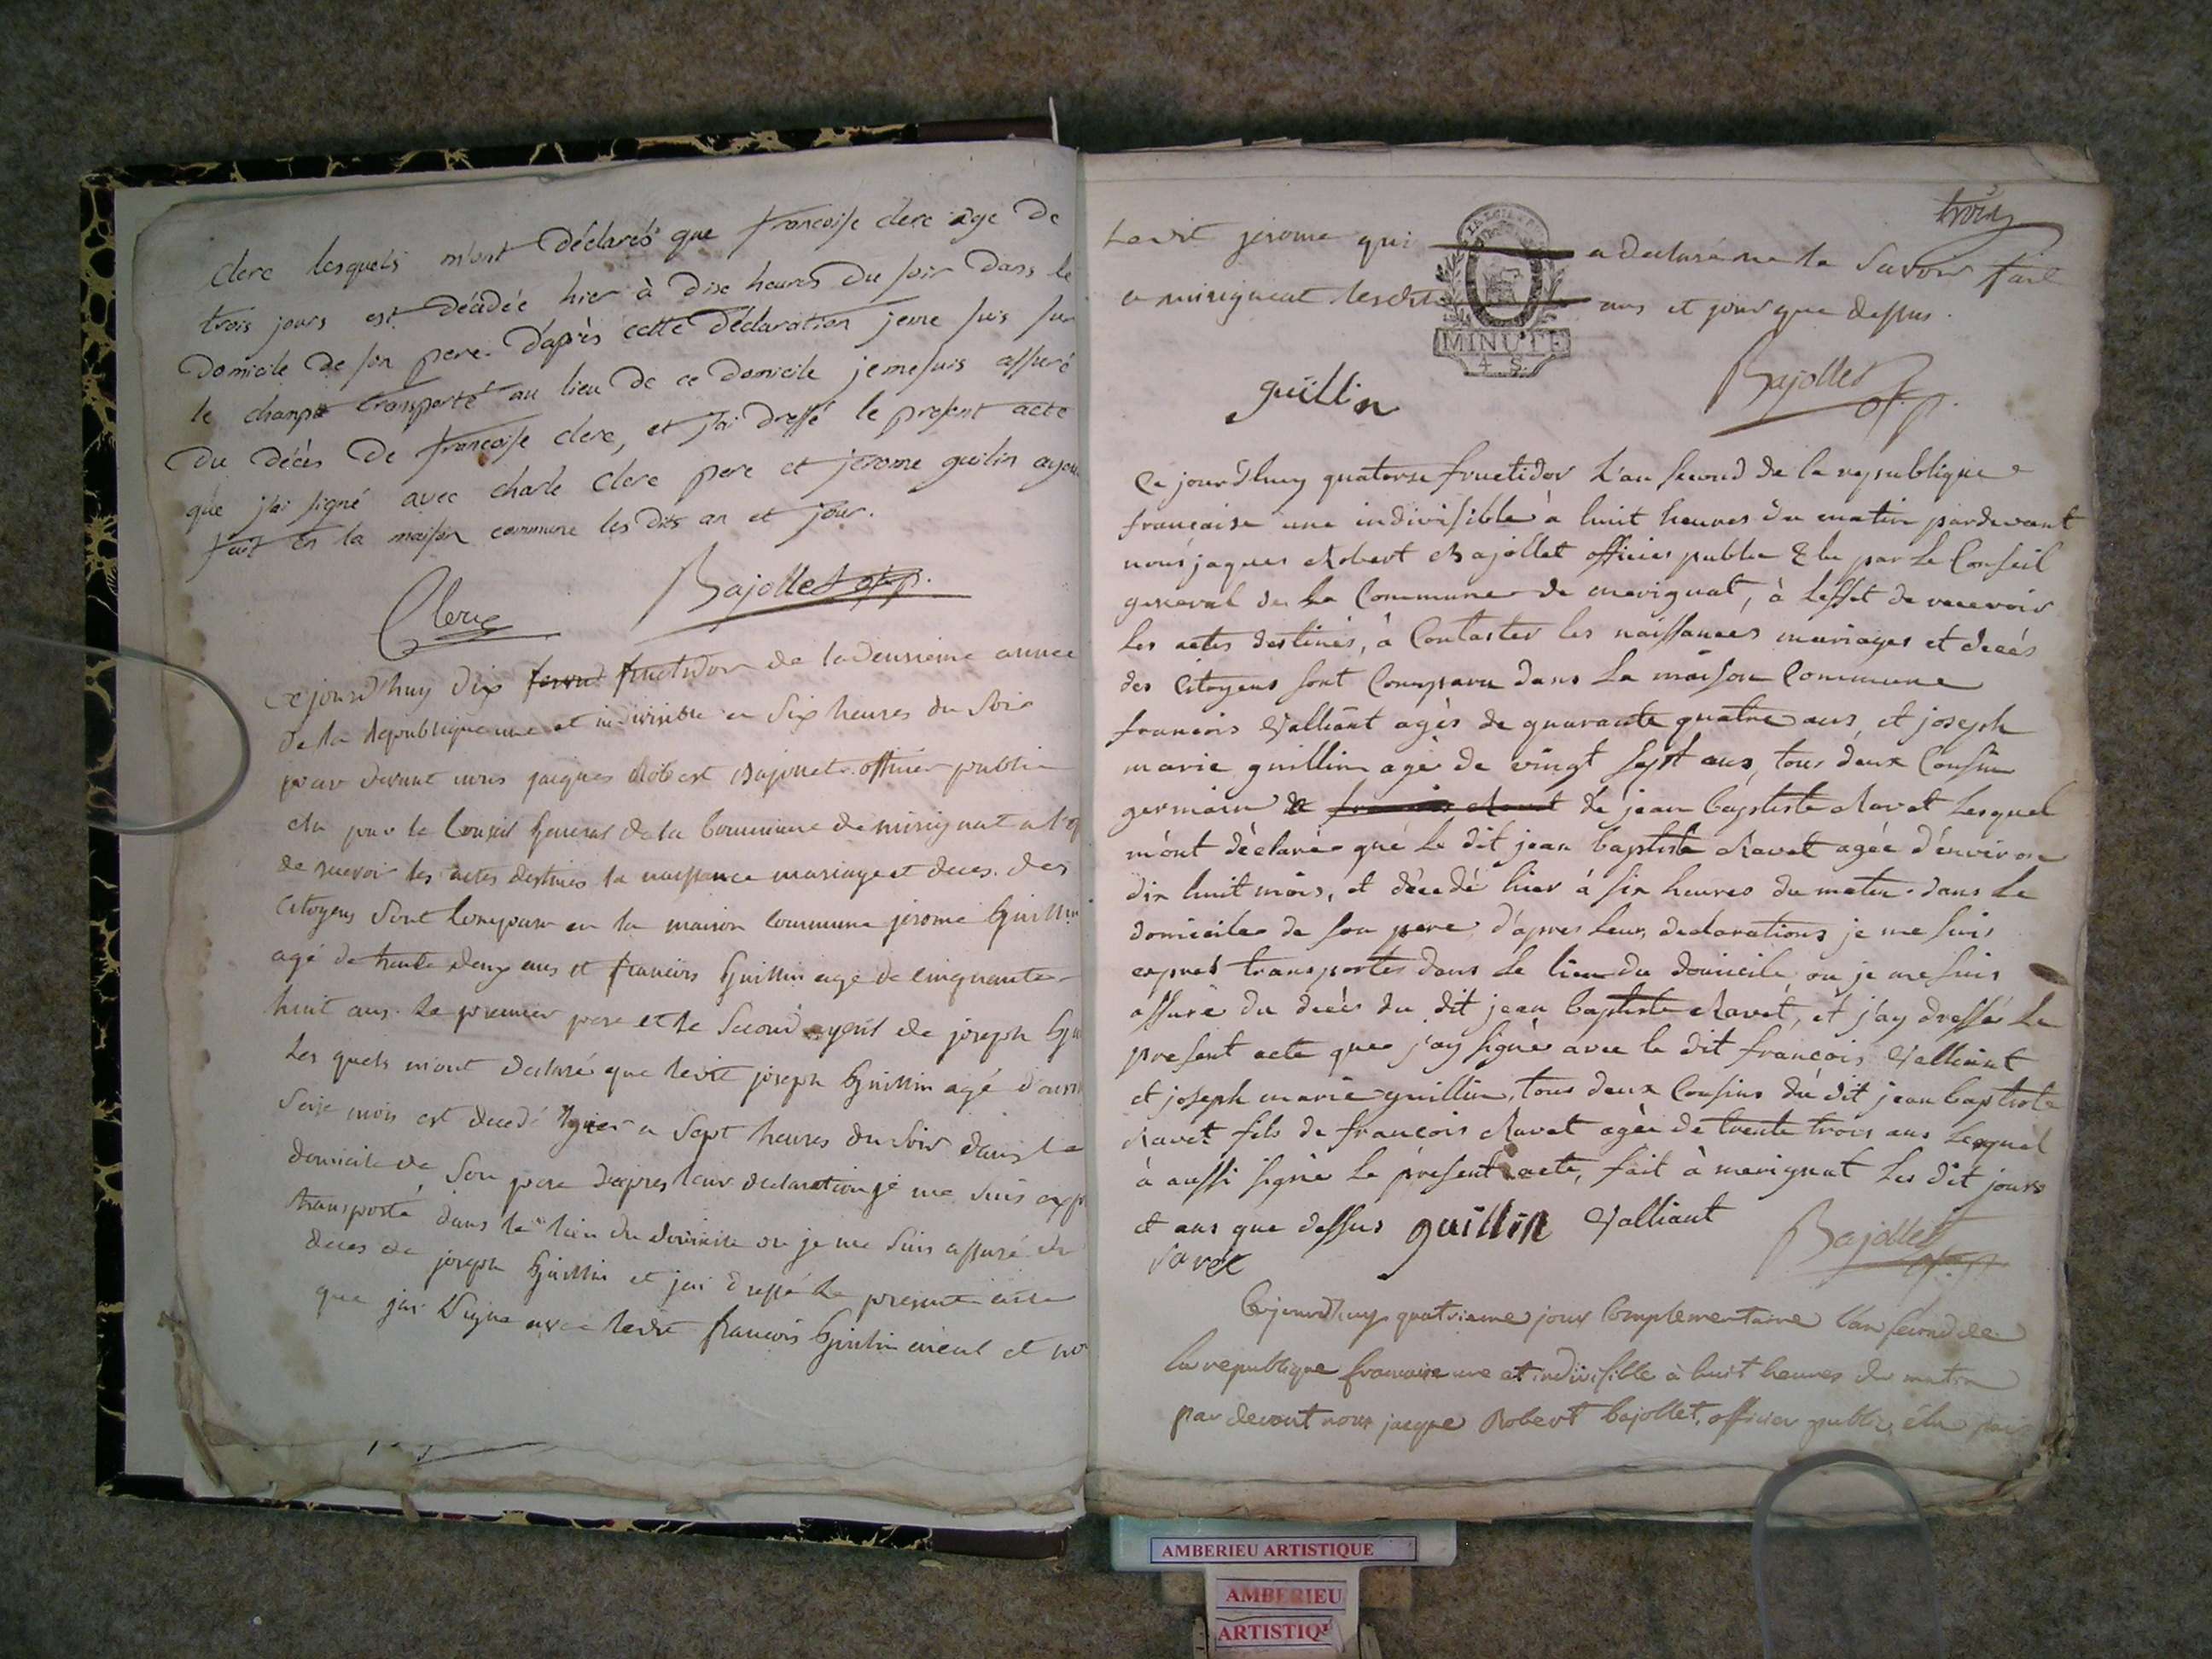 Clerc lesquels m'ont Déclarés que francoise clerc age De
trois jours est Décédée hier à Dixe heures Du soir Dans le
Domicile De son pere. D'après cette Déclaration jeme suis sur
le champt transporté au lieu De ce Domicile jemesuis assuré
Du Décès De francoise clerc, et j'ai Dressé le present acte
que j'ai signé avec charle Clerc pere et jerome guilin ayeu
fait en la maison commune les Dits an et jour.
Clerc Bajollet of. p.
Cejourd'huy Dix fructidor de la deusieme annee
De la Republique une et indivisible a Six heures du Soir
par devant nous jacques Robert Bajollet officier public
elu par le Conseil General de la Commune de mérignat a l'ef
de recevoir les actes destinés la naissance mariage et deces des
Citoyens Sont Comparu en la maison Commune jerome Guillin
agé de trente deux ans et francois Guillin agé de cinquante
huit ans. Le premier pere et le Second ayeul de joseph Gu
Les quels m'ont declaré que ledit joseph Guillin agé d'envi
Seise mois est decedé hyier a Sept heures du Soir dans le
domicile de Son pere d'apres leur declaration je me Suis exp
transporté dans le lieu du domicile ou je me Suis assuré du
deces de joseph Guillin et jai dressé le present acte
que jai Signé avec ledit francois Guillin aieul et no
trois
Ledit jerome qui a declaré ne le Savoir fait
a mérignat lesdits ans et jour que dessus.
MINUTE
4. S.
guillin Bajollet of. p.
Ce jourd'huy quatorse fructidor L'an second de la republique
française une indivisible à huit heures du matin pardevant
nous jaques Robert Bajollet officier public Elu par Le Conseil
general de La Commune de merignat, à L'effet de recevoir
Les actes destinés, à Constater les naissances mariages et decès
des Citoyens sont Comparu dans La maison Commune
francois Valliant agès de quarante quatre ans, et joseph
marie guillin agé de vingt sept ans, tous deux Cousin
germain de jean baptiste Ravet Lesquel
m'ont dèclaré que Le dit jean baptiste Ravet agée d'environ
dix huit mois, et décedé hier à six heures du matin dans Le
domicile de son pere d'apres Leur declarations je me suis
exprès transportés dans Le lieu du domicile ou je me suis
assuré du decès du dit jean baptiste Ravet, et j'ay dressé Le
present acte que j'ay signé avec le dit françois Valliant
et joseph marie guillin, tous deux Cousins du dit jean baptiste
Ravet fils de francois Ravet agée de trente trois ans Lesquel
à aussi signé Le present acte, fait à merignat Les dit jours
et ans que dessus guillin Valliant Bajollet
ravet of. p.
Cejourd'huy quatrieme jour Complementaire L'an second de
la republique francaise une et indivisible à huit heures du matin
par devant nous jacque Robert bajollet, officier public élu par
AMBERIEU ARTISTIQUE
AMBERIEU
ARTISTIQ